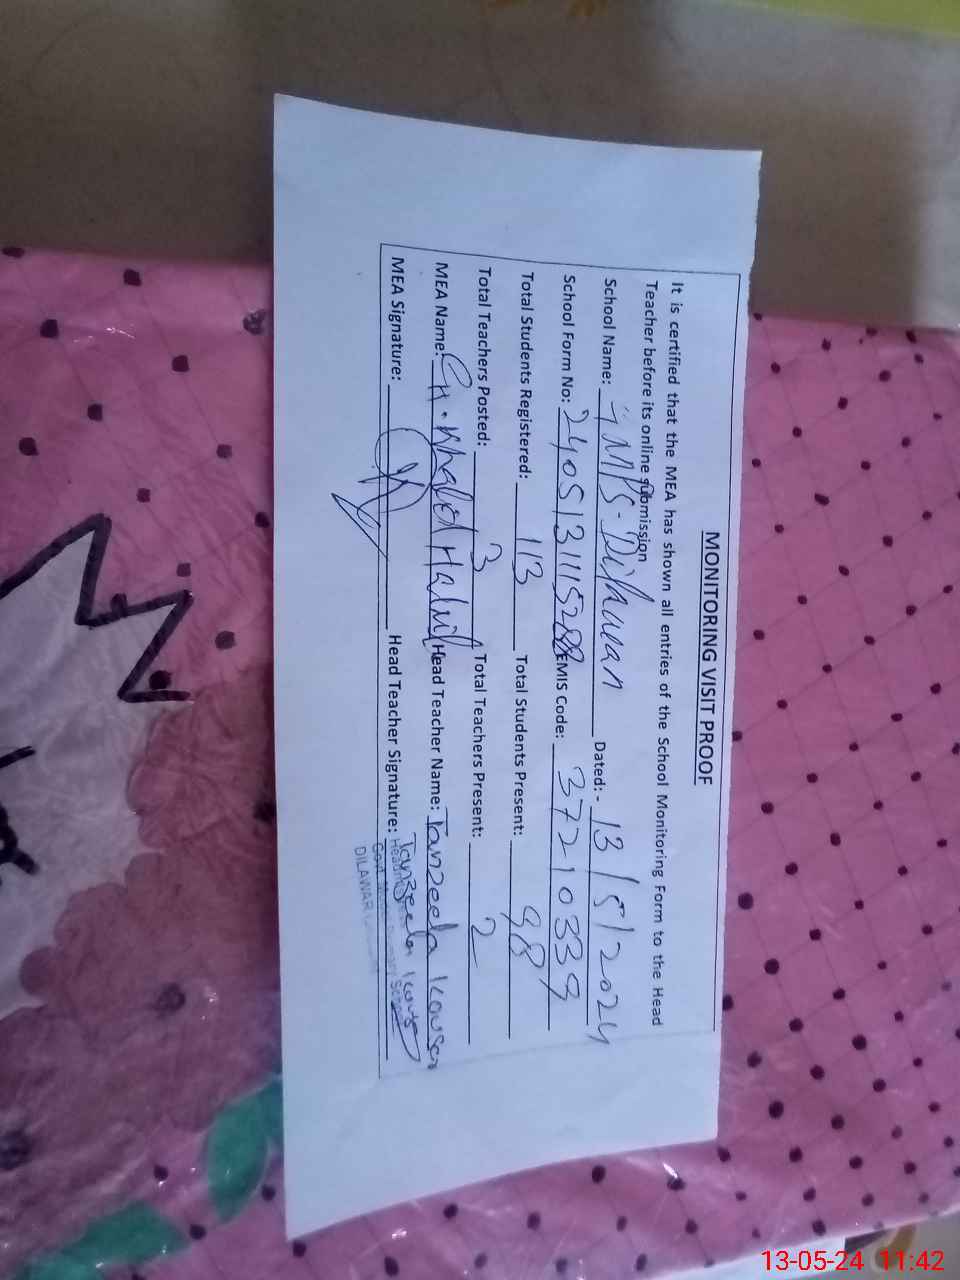 MONITORING VISIT PROOF
It is certified that the MEA has shown all entries of the School Monitoring Form to the Head
Teacher before its online submission
School Name: Dated:- 13/5/2024
School Form No: EMIS Code: 37210339
Total Students Registered: 113 Total Students Present: 98
Total Teachers Posted: 3 Total Teachers Present: 2
MEA Name: CH. Khalid Head Teacher Name: Tanzeela Kowser
MEA Signature: Head Teacher Signature: Tanzeela
DILAWAR
13-05-24 11:42